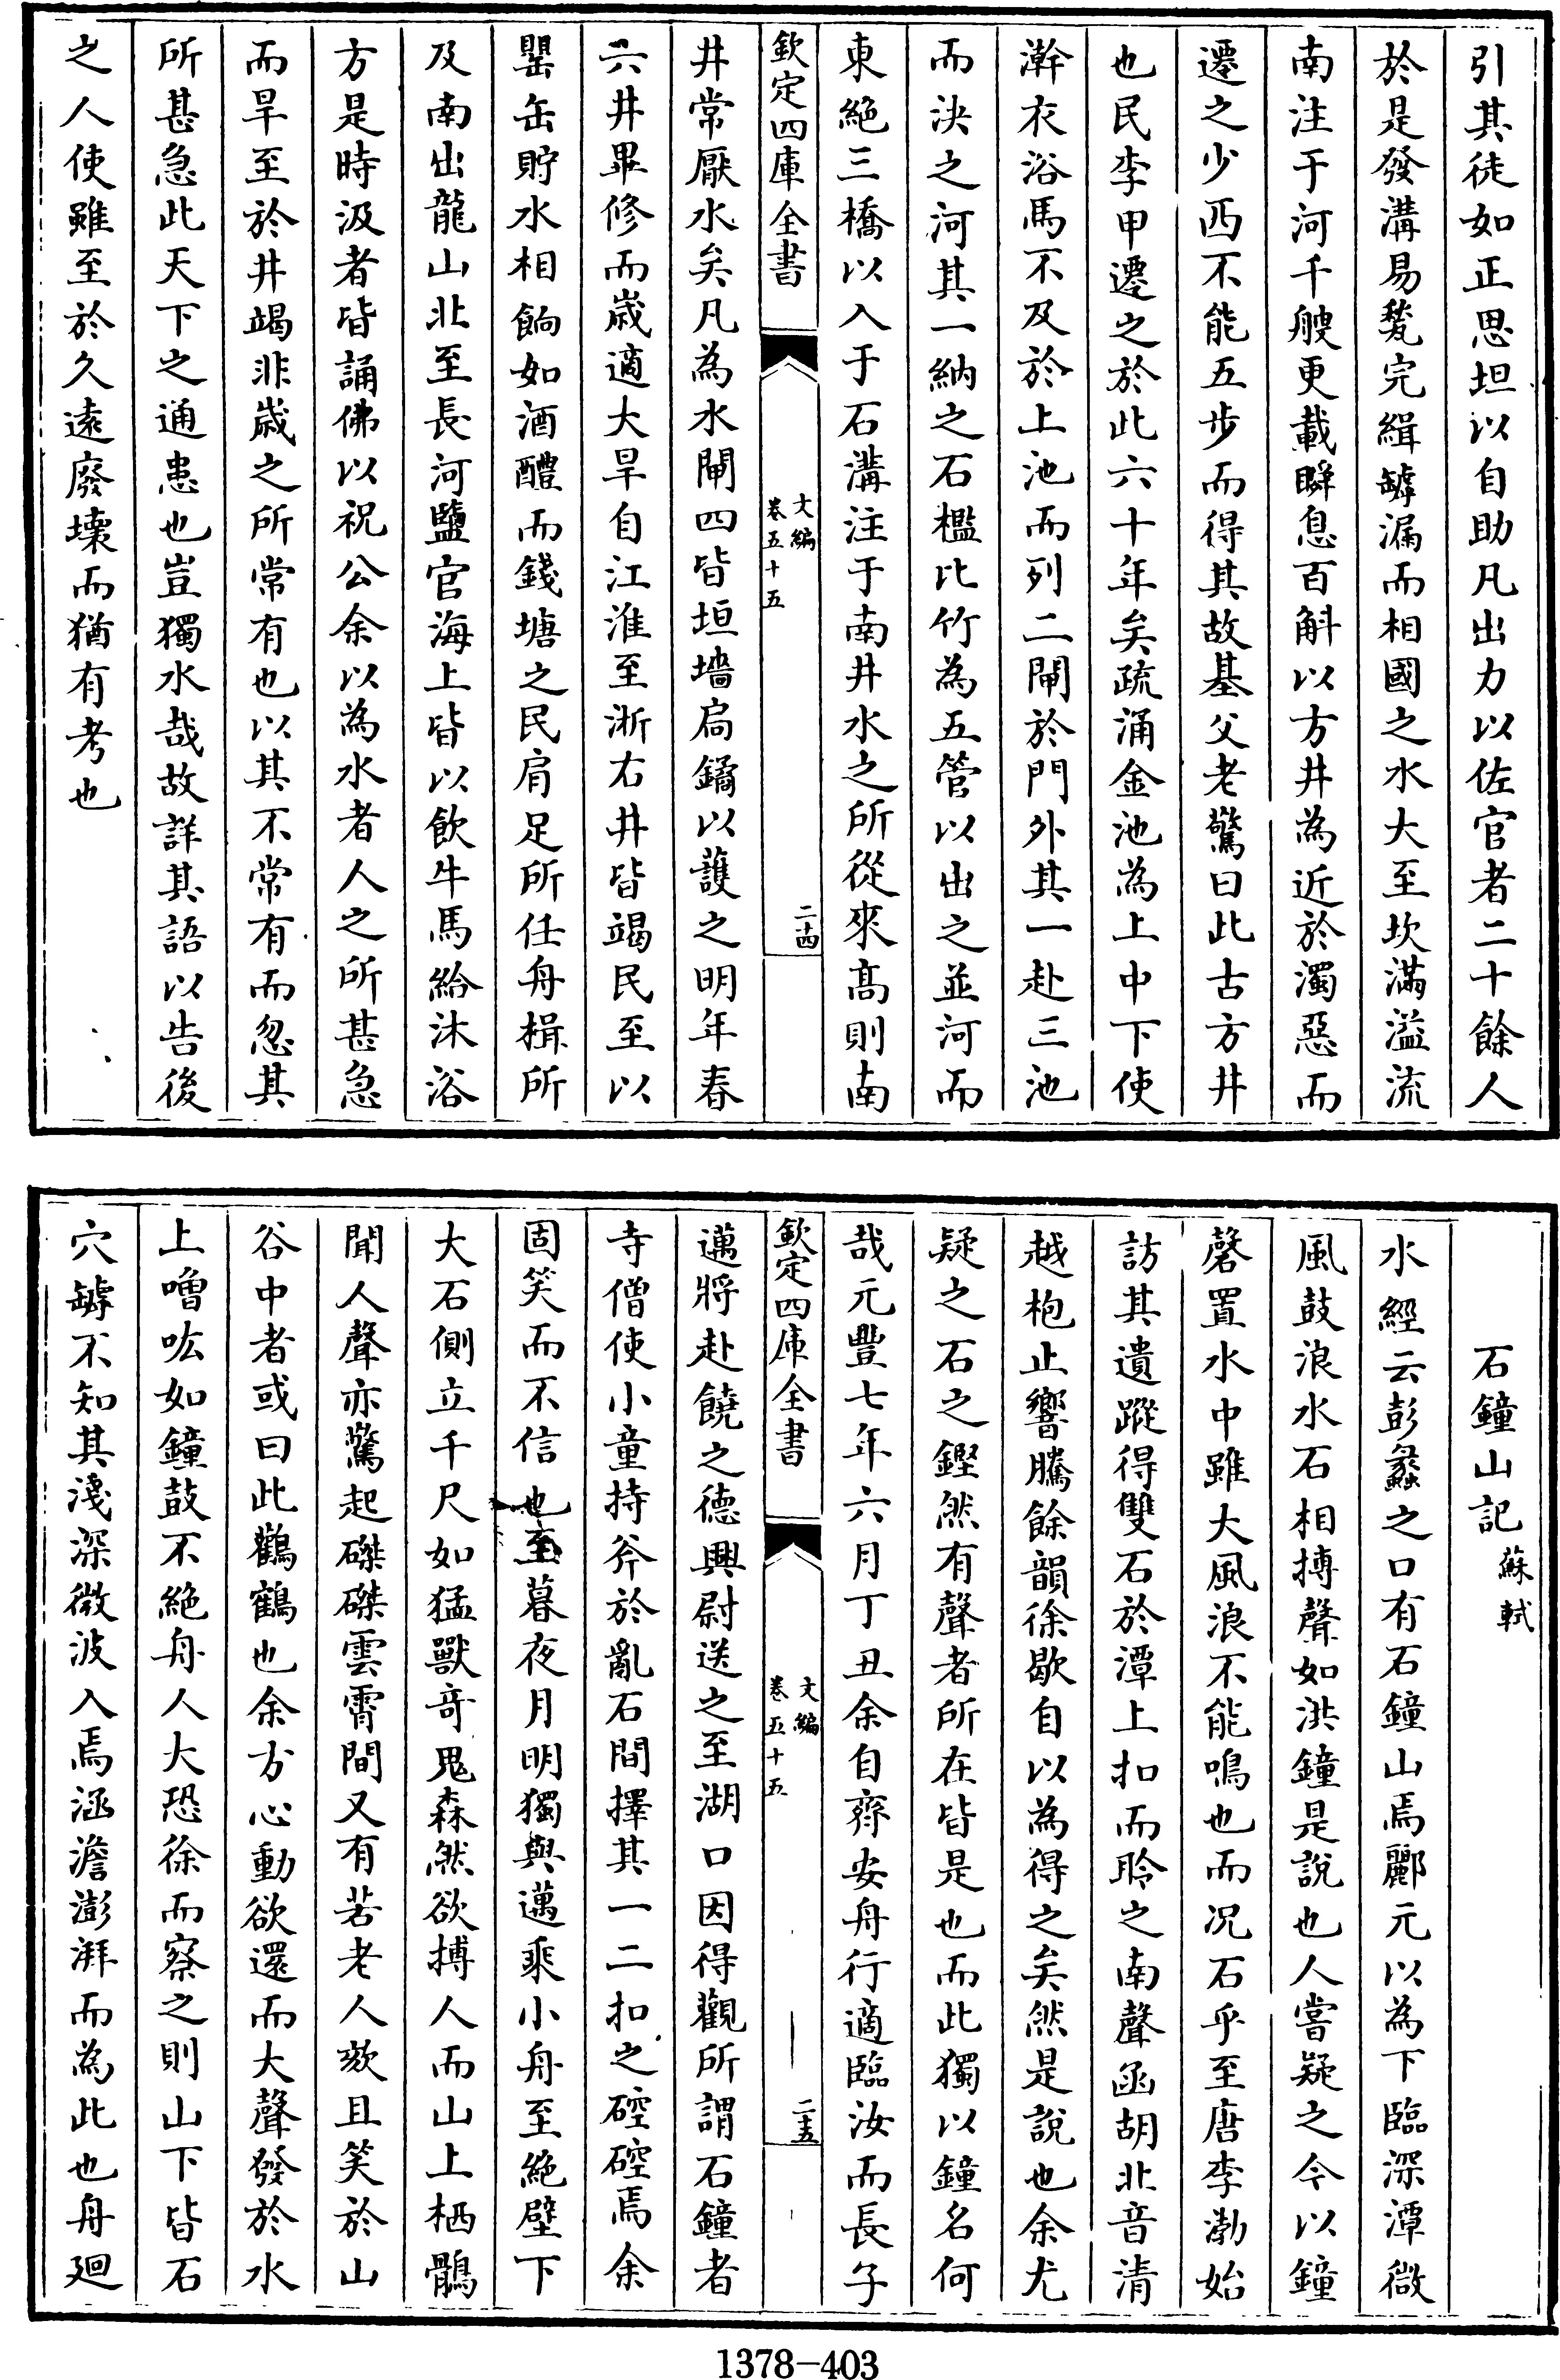 引其徒如正思坦以自助凡出力以佐官者二十餘人
於是發溝易甃完緝罅漏而相國之水大至坎滿溢流
南注于河千艘更載瞬息百斛以方井為近於濁惡而
遷之少西不能五步而得其故基父老驚曰此古方井
也民李甲遷之於此六十年矣疏涌金池為上中下使
澣衣浴馬不及於上池而列二閘於門外其一赴三池
而決之河其一納之石檻比竹為五管以出之並河而
東絶三橋以入于石溝注于南井水之所從來髙則南
欽定四庫全書
文編
卷五十五
二十四
井常厭水矣凡為水閘四皆垣墻扃鐍以䕶之明年春
六井畢修而嵗適大旱自江淮至浙右井皆竭民至以
罌缶貯水相餉如酒醴而錢塘之民肩足所任舟楫所
及南出龍山北至長河鹽官海上皆以飲牛馬給沐浴
方是時汲者皆誦佛以祝公余以為水者人之所甚急
而旱至於井竭非嵗之所常有也以其不常有而忽其
所甚急此天下之通患也豈獨水哉故詳其語以告後
之人使雖至於久逺廢壊而猶有考也
石鐘山記
蘇軾
水經云彭蠡之口有石鐘山焉酈元以為下臨深潭微
風鼓浪水石相搏聲如洪鐘是說也人嘗疑之今以鐘
磬置水中雖大風浪不能鳴也而况石乎至唐李渤始
訪其遺蹤得雙石於潭上扣而聆之南聲函胡北音清
越枹止響騰餘韻徐歇自以為得之矣然是說也余尤
疑之石之鏗然有聲者所在皆是也而此獨以鐘名何
哉元豐七年六月丁丑余自齊安舟行適臨汝而長子
欽定四庫全書
文編
卷五十五
二十五
邁將赴饒之德興尉送之至湖口因得觀所謂石鐘者
寺僧使小童持斧於亂石間擇其一二扣之硿硿焉余
固笑而不信也至暮夜月明獨與邁乘小舟至絶壁下
大石側立千尺如猛獸竒鬼森然欲搏人而山上栖鶻
聞人聲亦驚起磔磔雲霄間又有若老人欬且笑於山
谷中者或曰此鸛鶴也余方心動欲還而大聲發於水
上噌吰如鐘鼓不絶舟人大恐徐而察之則山下皆石
穴罅不知其淺深微波入焉涵澹澎湃而為此也舟廻
1378-403